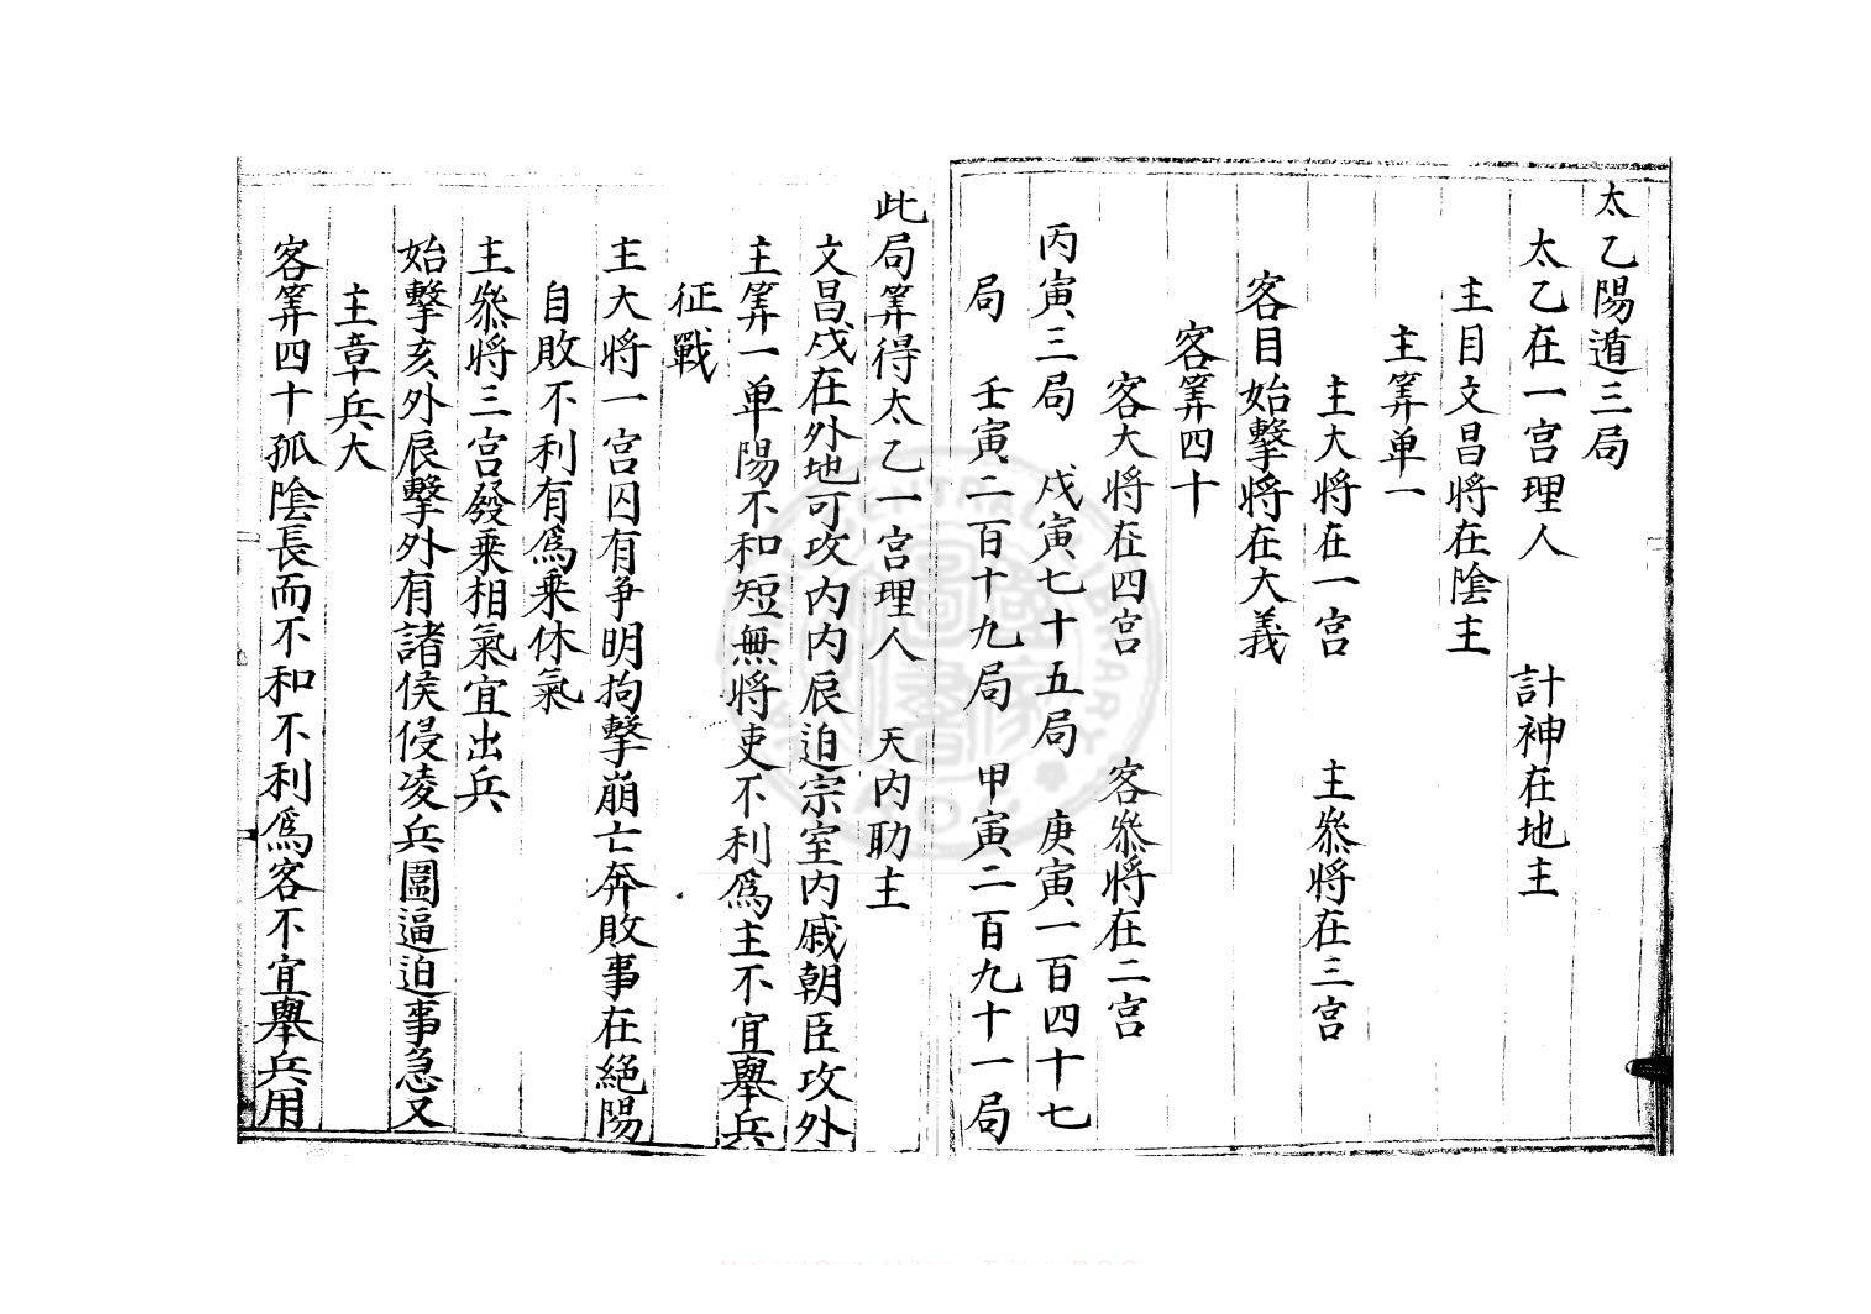 太乙陽遁三局
太乙在一宫理人　計神在地主
主目文昌將在陰主
主筭单一
主大將在一宫　主叅將在三宫
客目始擊將在大義
客筭四十
客大將在四宫　客叅將在二宫
丙寅三局　戊寅七十五局　庚寅一百四十七
局　壬寅二百十九局　甲寅二百九十一局
此局筭得太乙一宫理人　天内助主
文昌戌在外地可攻内内辰迫宗室内戚朝臣攻外
主筭一单陽不和短無將吏不利爲主不宜舉兵
征戰
主大將一宫囚有爭明拘擊崩亡奔敗事在絕陽
自敗不利有爲乗休氣
主叅將三宫發乗相氣宜出兵
始擊亥外辰擊外有諸侯侵凌兵圍逼迫事急又
主章兵大
客筭四十孤陰長而不和不利爲客不宜舉兵用